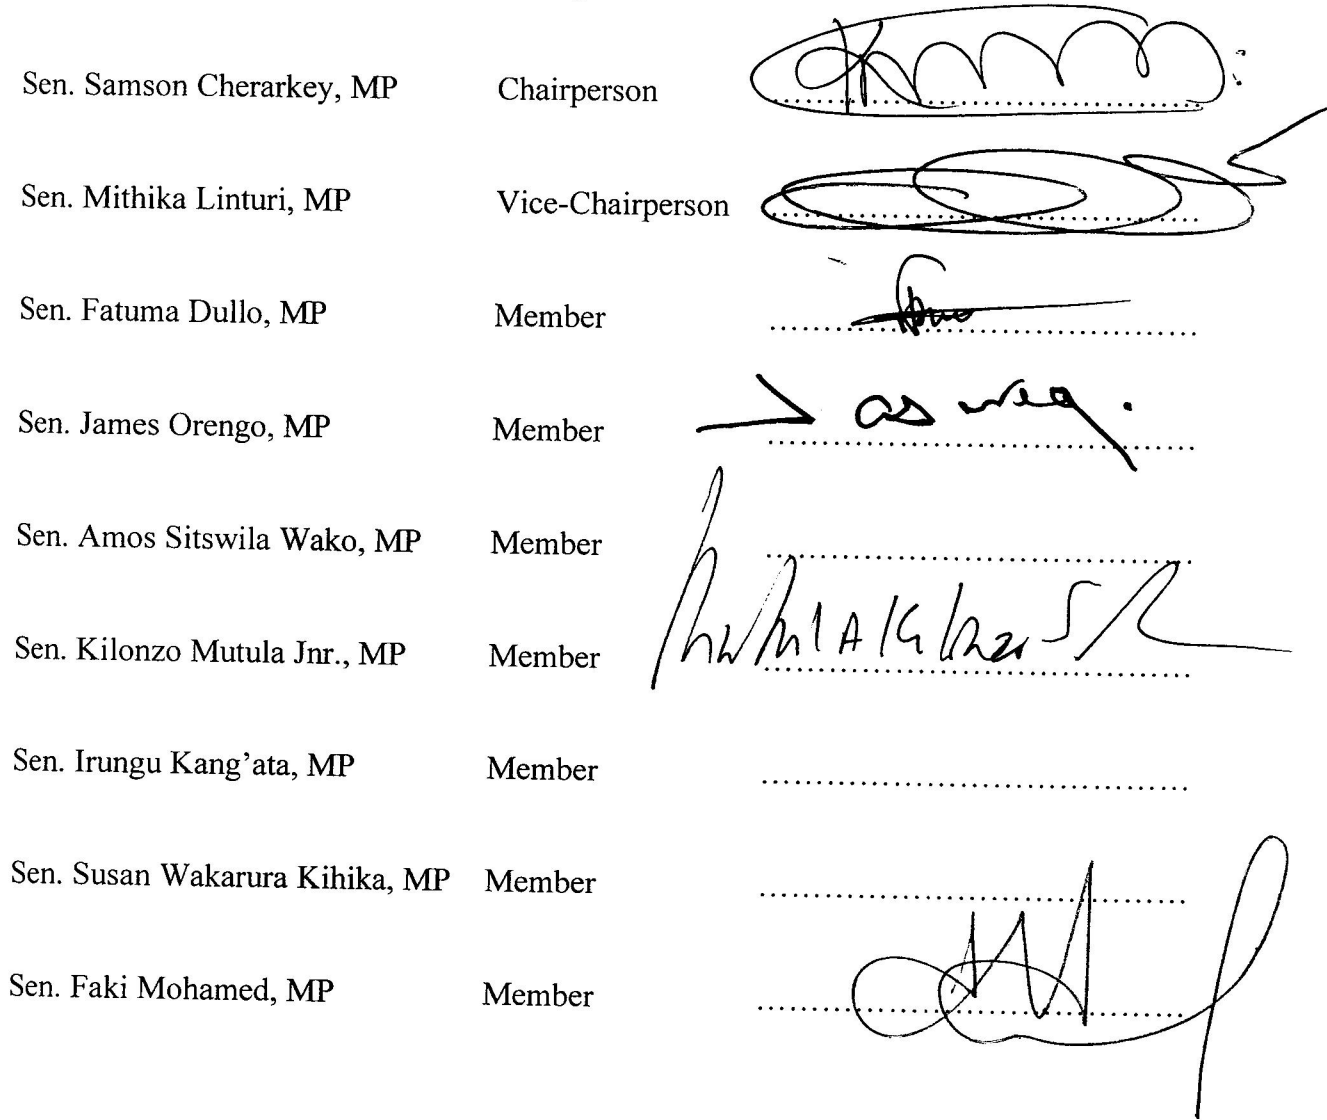 Sen. Samson Cherarkey, MP Chairperson
Sen. Mithika Linturi, MP Vice-Chairperson
Sen. Fatuma Dullo, MP Member
Sen. James Orengo, MP Member
Sen. Amos Sitswila Wako, MP Member
Sen. Kilonzo Mutula Jnr., MP Member
Sen. Irungu Kang'ata, MP Member
Sen. Susan Wakarura Kihika, MP Member
Sen. Faki Mohamed, MP Member